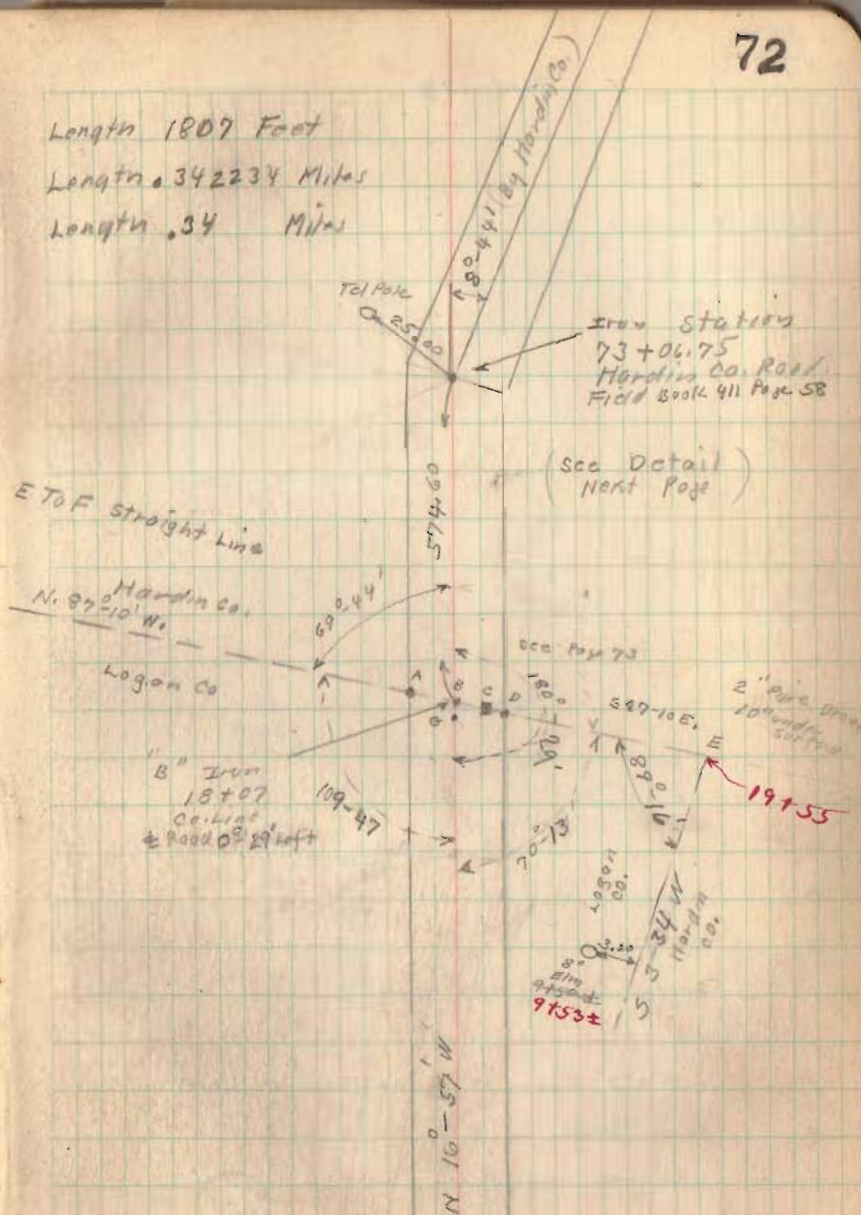 72
Length 1807 Feet
Length .342234 Miles
Length .34 Miles
8°-44' (By Hardin Co.)
Tel Pole
25.00
Iron Station
73+06.75
Hardin Co. Road
Field Book 411 Page 58
574.60
(See Detail
Next Page)
E To F Straight Line
Hardin Co.
N. 87°-10' W.
Logan Co
69°-44'
See Page 73
A
A
B
C
D
180°
S 87-10 E.
E
2" Pipe
10" under
surface
19+55
"B" Iron
18+07
Co. Line
Road 0°-29' Left
109-47
70°-13
Logan
Co.
S 3-34 W
Hardin
Co.
3.00
8"
Elm
9+50±
9+53±
N 16°-57' W